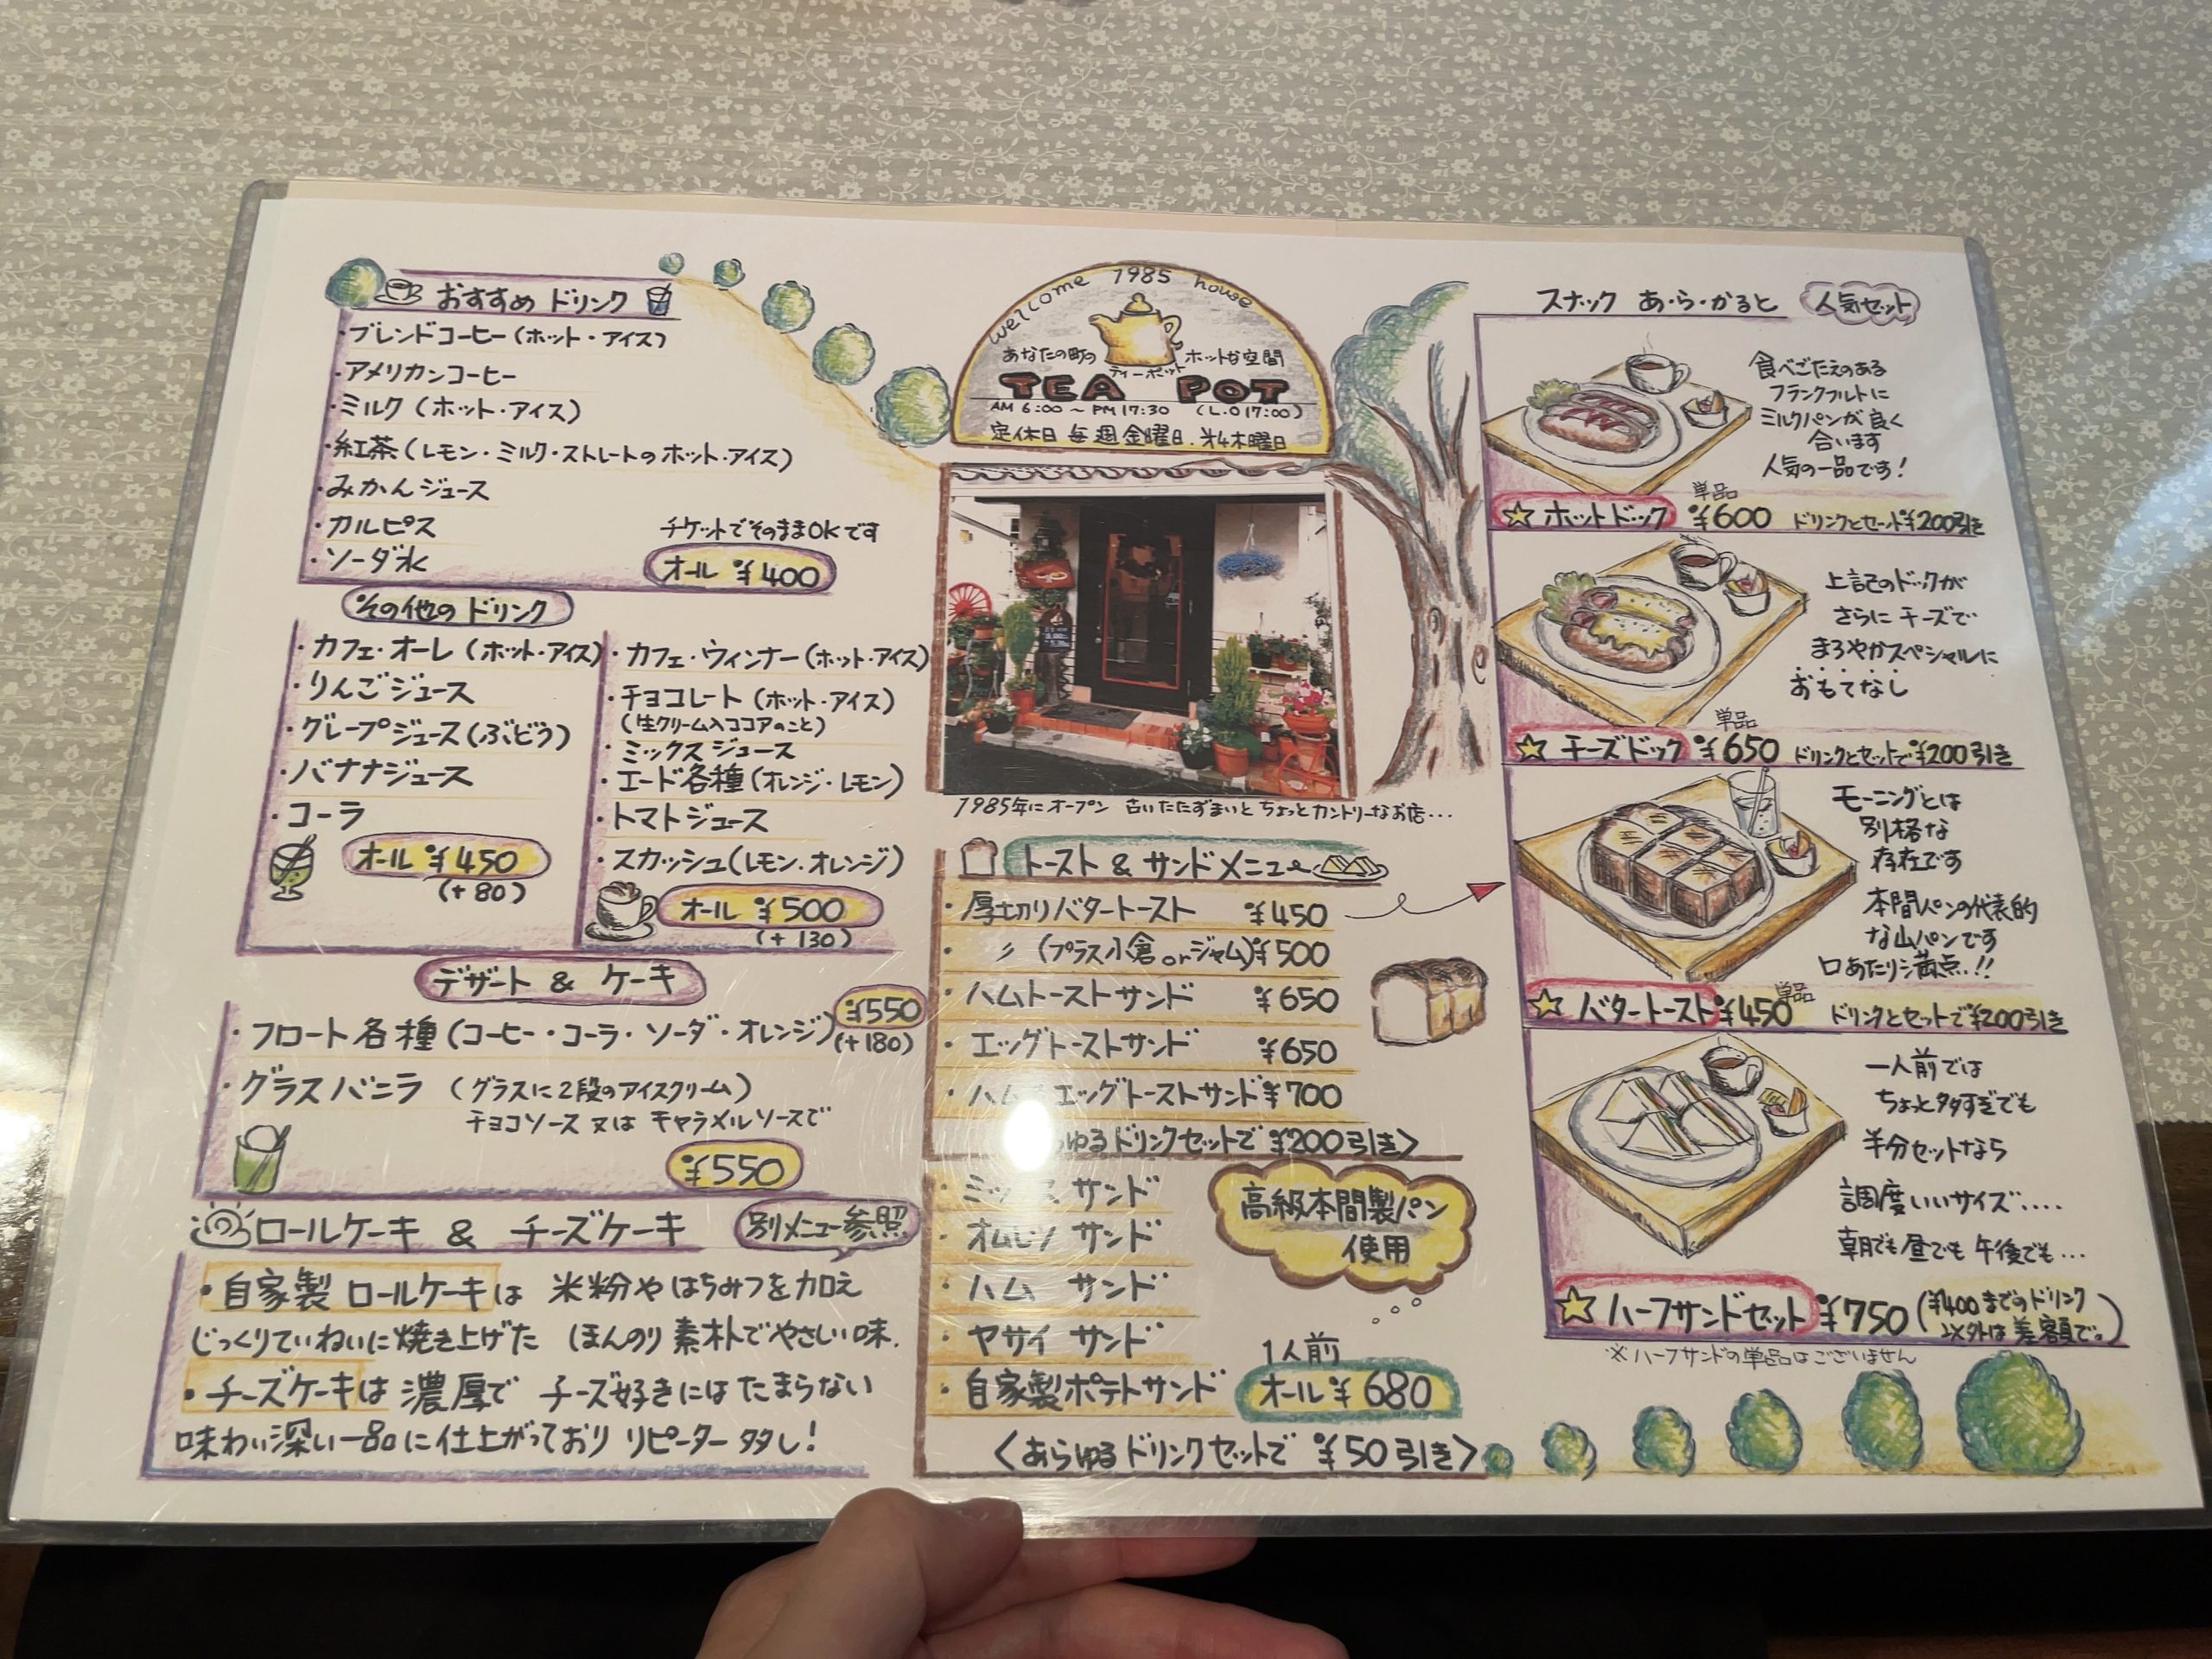 おすすめ ドリンク
・ブレンドコーヒー(ホット・アイス)
・アメリカンコーヒー
・ミルク (ホット・アイス)
・紅茶(レモン・ミルク・ストレートのホット・アイス)
・みかんジュース
・カルピス
・ソーダ水
チケットでそのままOKです
オール ¥400
その他の ドリンク
・カフェ・オーレ (ホット・アイス)
・りんごジュース
・グレープジュース(ぶどう)
・バナナジュース
・コーラ
オール ¥450
(+80)
・カフェ・ウィンナー(ホット・アイス)
・チョコレート (ホット・アイス)
(生クリーム入ココアのこと)
・ミックスジュース
・エード各種(オレンジ・レモン)
・トマトジュース
・スカッシュ(レモン・オレンジ)
オール ¥500
(+130)
デザート & ケーキ
・フロート各種(コーヒー・コーラ・ソーダ・オレンジ)
¥550
(+180)
・グラスバニラ (グラスに2段のアイスクリーム)
チョコソース 又は キャラメルソースで
¥550
ロールケーキ & チーズケーキ
別メニュー参照
・自家製 ロールケーキは 米粉やはちみつを加え
じっくりていねいに焼き上げた ほんのり素朴でやさしい味.
・チーズケーキは 濃厚で チーズ好きにはたまらない
味わい深い一品に仕上がっており リピーター多し!
welcome 1985 house
あなたの町の ホットな空間
ティーポット
TEA POT
AM 6:00 ~ PM 17:30 (L.O 17:00)
定休日 毎週金曜日.
1985年にオープン 古いたたずまいと ちょっとカントリーなお店...
トースト & サンドメニュー
・厚切りバタートースト ¥450
〃 (プラス小倉orジャム)¥500
・ハムトーストサンド ¥650
・エッグトーストサンド ¥650
・ハム エッグトーストサンド ¥700
ゆるドリンクセットで ¥200引き>
サンド
・オムレツ サンド
・ハム サンド
・ヤサイ サンド
・自家製ポテトサンド
高級本間製パン
使用
1人前
オール ¥680
<あらゆるドリンクセットで ¥50引き>
スナック あ・ら・かると
人気セット
食べごたえのある
フランクフルトに
ミルクパンが良く
合います
人気の一品です!
単品
☆ ホットドック ¥600 ドリンクとセット¥200引き
上記のドックが
さらに チーズで
まろやかスペシャルに
おもてなし
単品
☆ チーズドック ¥650 ドリンクとセットで¥200引き
モーニングとは
別格な
存在です
本間パンの代表的
な山パンです
口あたり満点..!!
単品
☆ バタートースト ¥450 ドリンクとセットで¥200引き
一人前では
ちょっと多すぎでも
半分セットなら
調度いいサイズ....
朝でも昼でも午後でも...
☆ ハーフサンドセット ¥750 (¥400までのドリンク
以外は差額で。)
※ハーフサンドの単品はございません